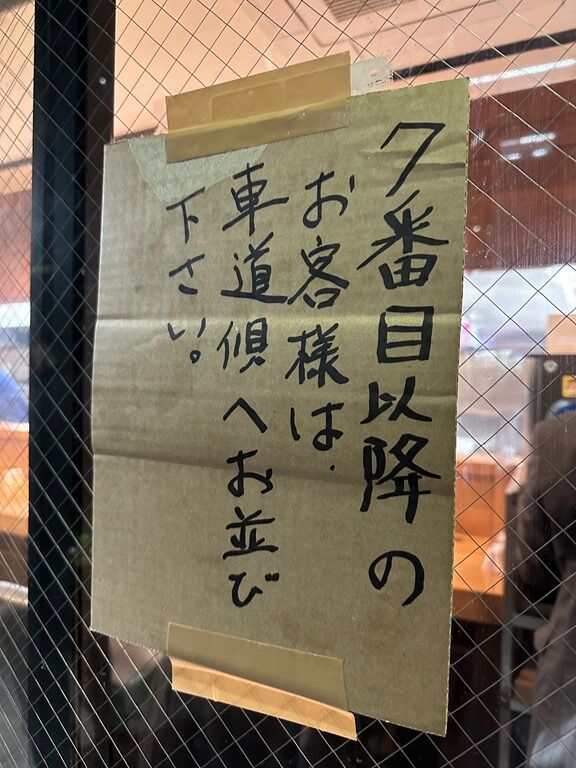 7番目以降の
お客様は、
車道側へお並び
下さい。